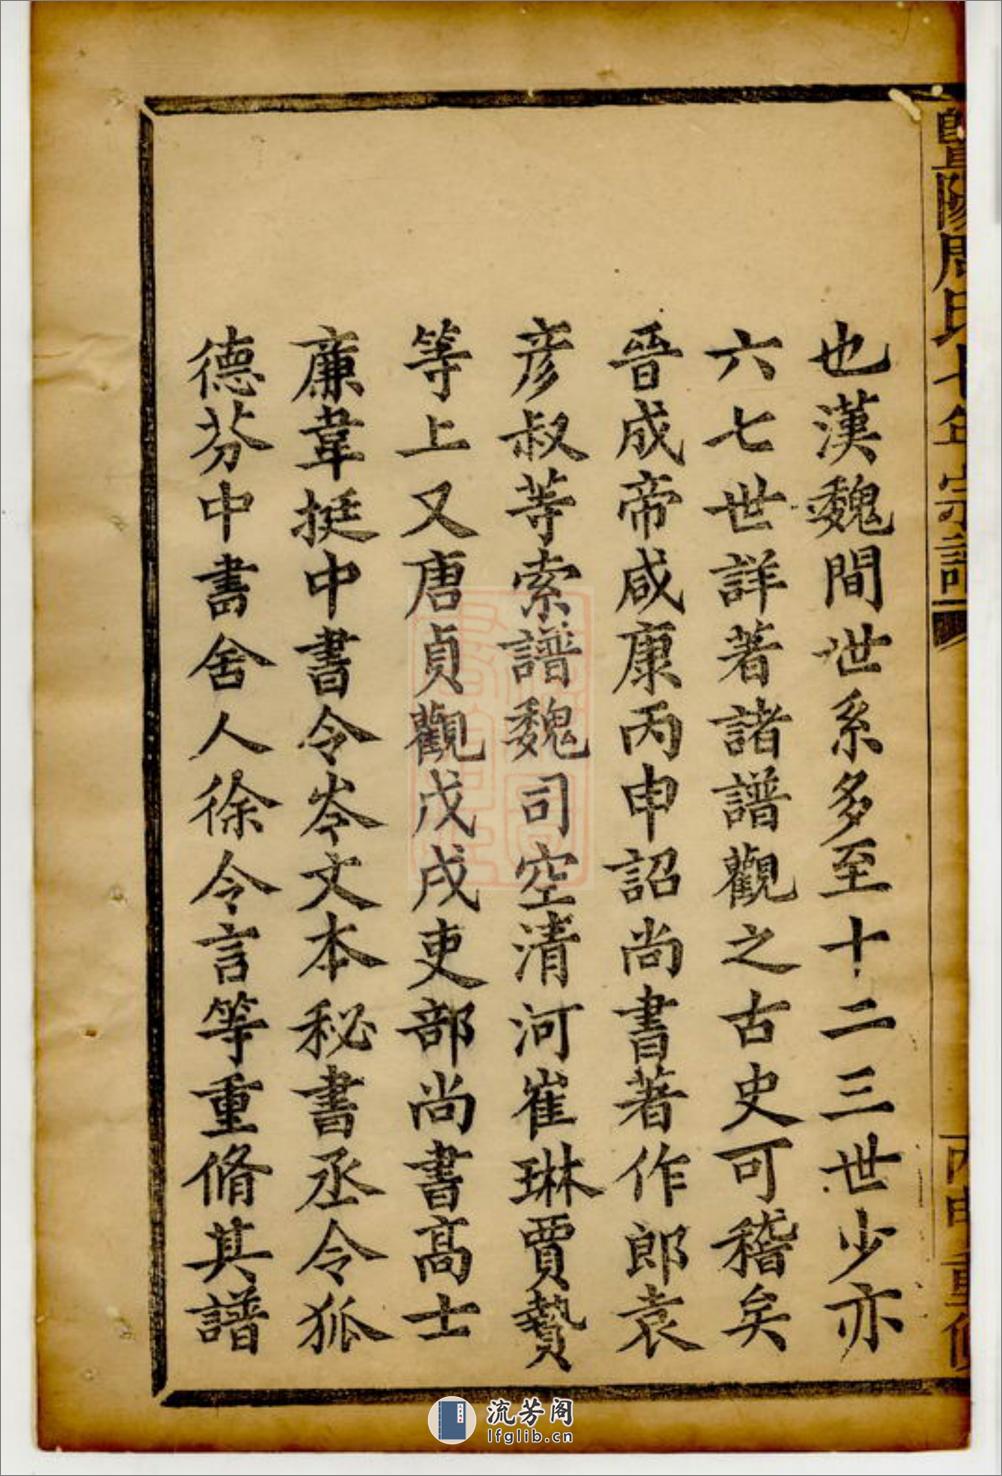 暨陽周氏七年宗譜
丙申重修
也漢魏間世系多至十二三世少亦
六七世詳著諸譜觀之古史可稽矣
晉成帝咸康丙申詔尚書著作郎袁
彦叔等索譜魏司空清河崔琳賈贄
等上又唐貞觀戊戌吏部尚書高士
廉韋挺中書令岑文本秘書丞令狐
德芬中書舍人徐令言等重脩其譜
流芳阁
lfglib.cn